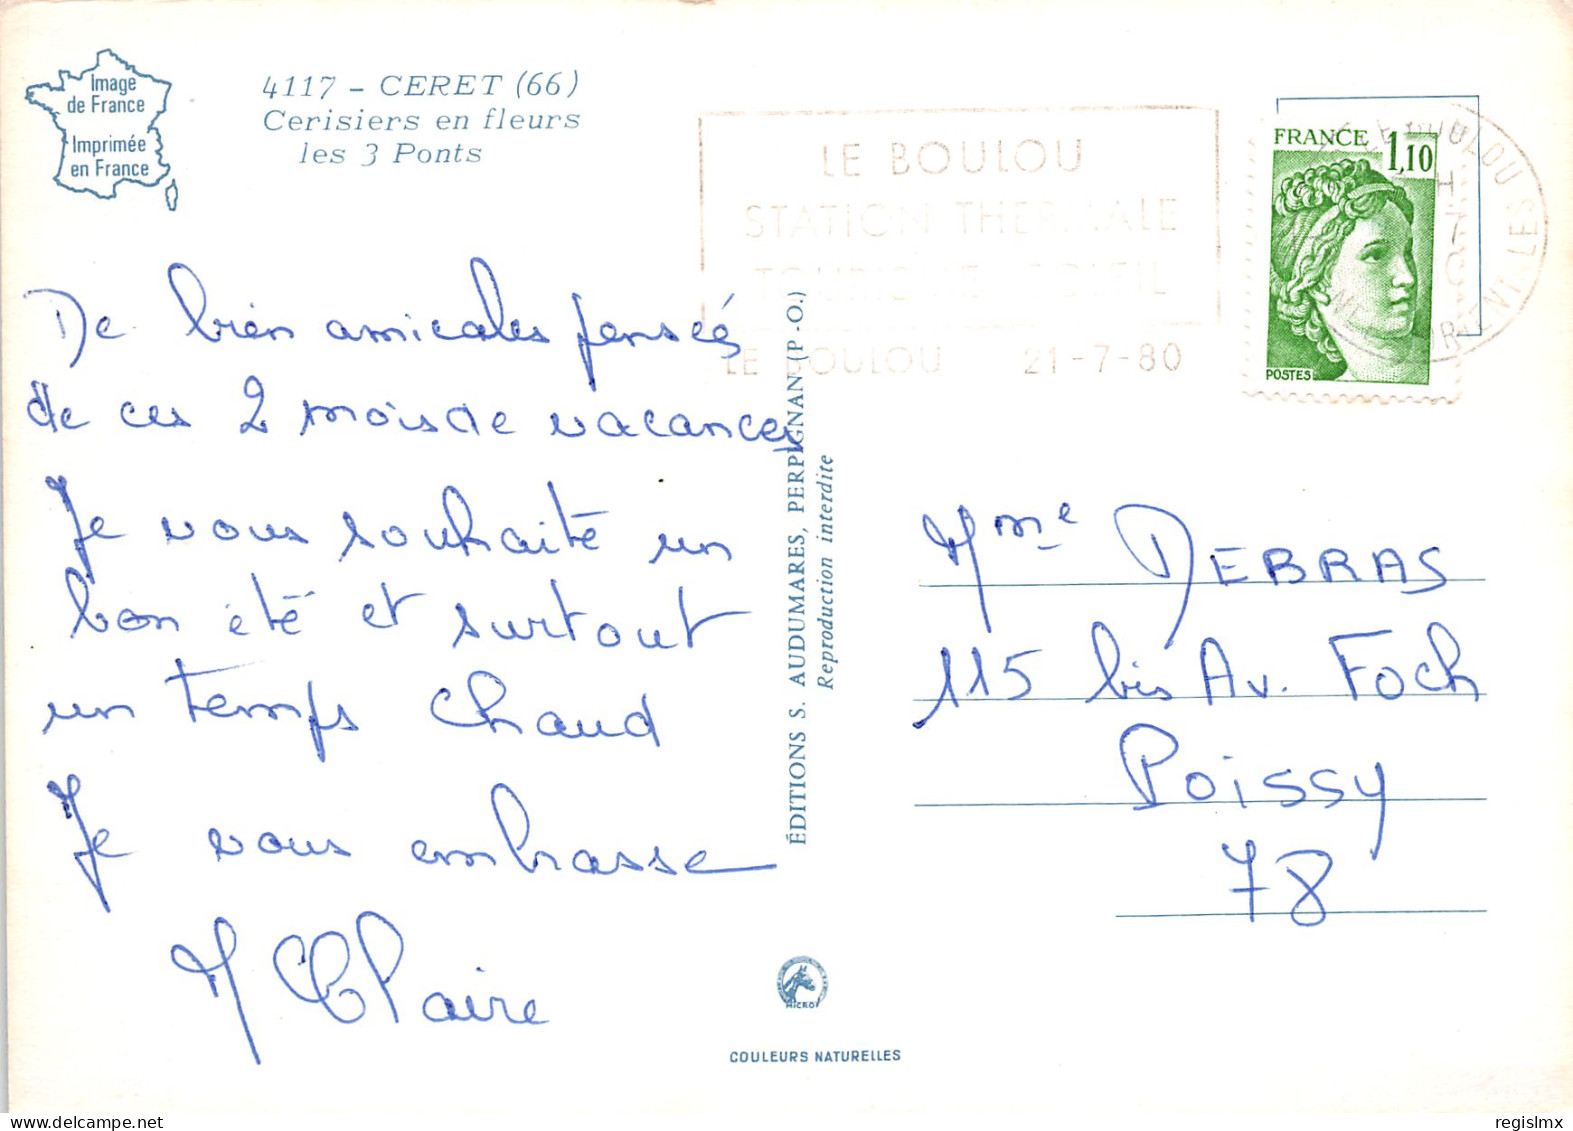 Image
de France
Imprimée
en France
4117 - CERET (66)
Cerisiers en fleurs
les 3 Ponts
LE BOULOU
STATION THERMALE
TOURISME SOLEIL
LE BOULOU 21-7-80
FRANCE
1,10
POSTES
De bien amicales pensés
de ces 2 mois de vacances
Je vous souhaite un
bon été et surtout
un temps chaud
Je vous embrasse
M Claire
ÉDITIONS S. AUDUMARES, PERPIGNAN (P.-O.)
Reproduction interdite
Mme DEBRAS
115 bis Av. Foch
Poissy
78
MICRO
COULEURS NATURELLES
www.delcampe.net
regislmx